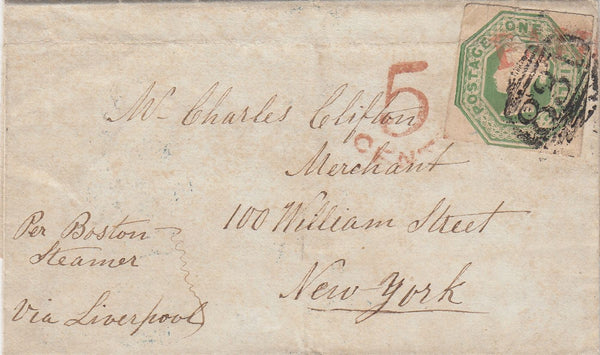 POSTAGE ONE
5
CENTS
Mr. Charles Clifton
Merchant
100 William Street
New York
Per Boston
Steamer
Via Liverpool